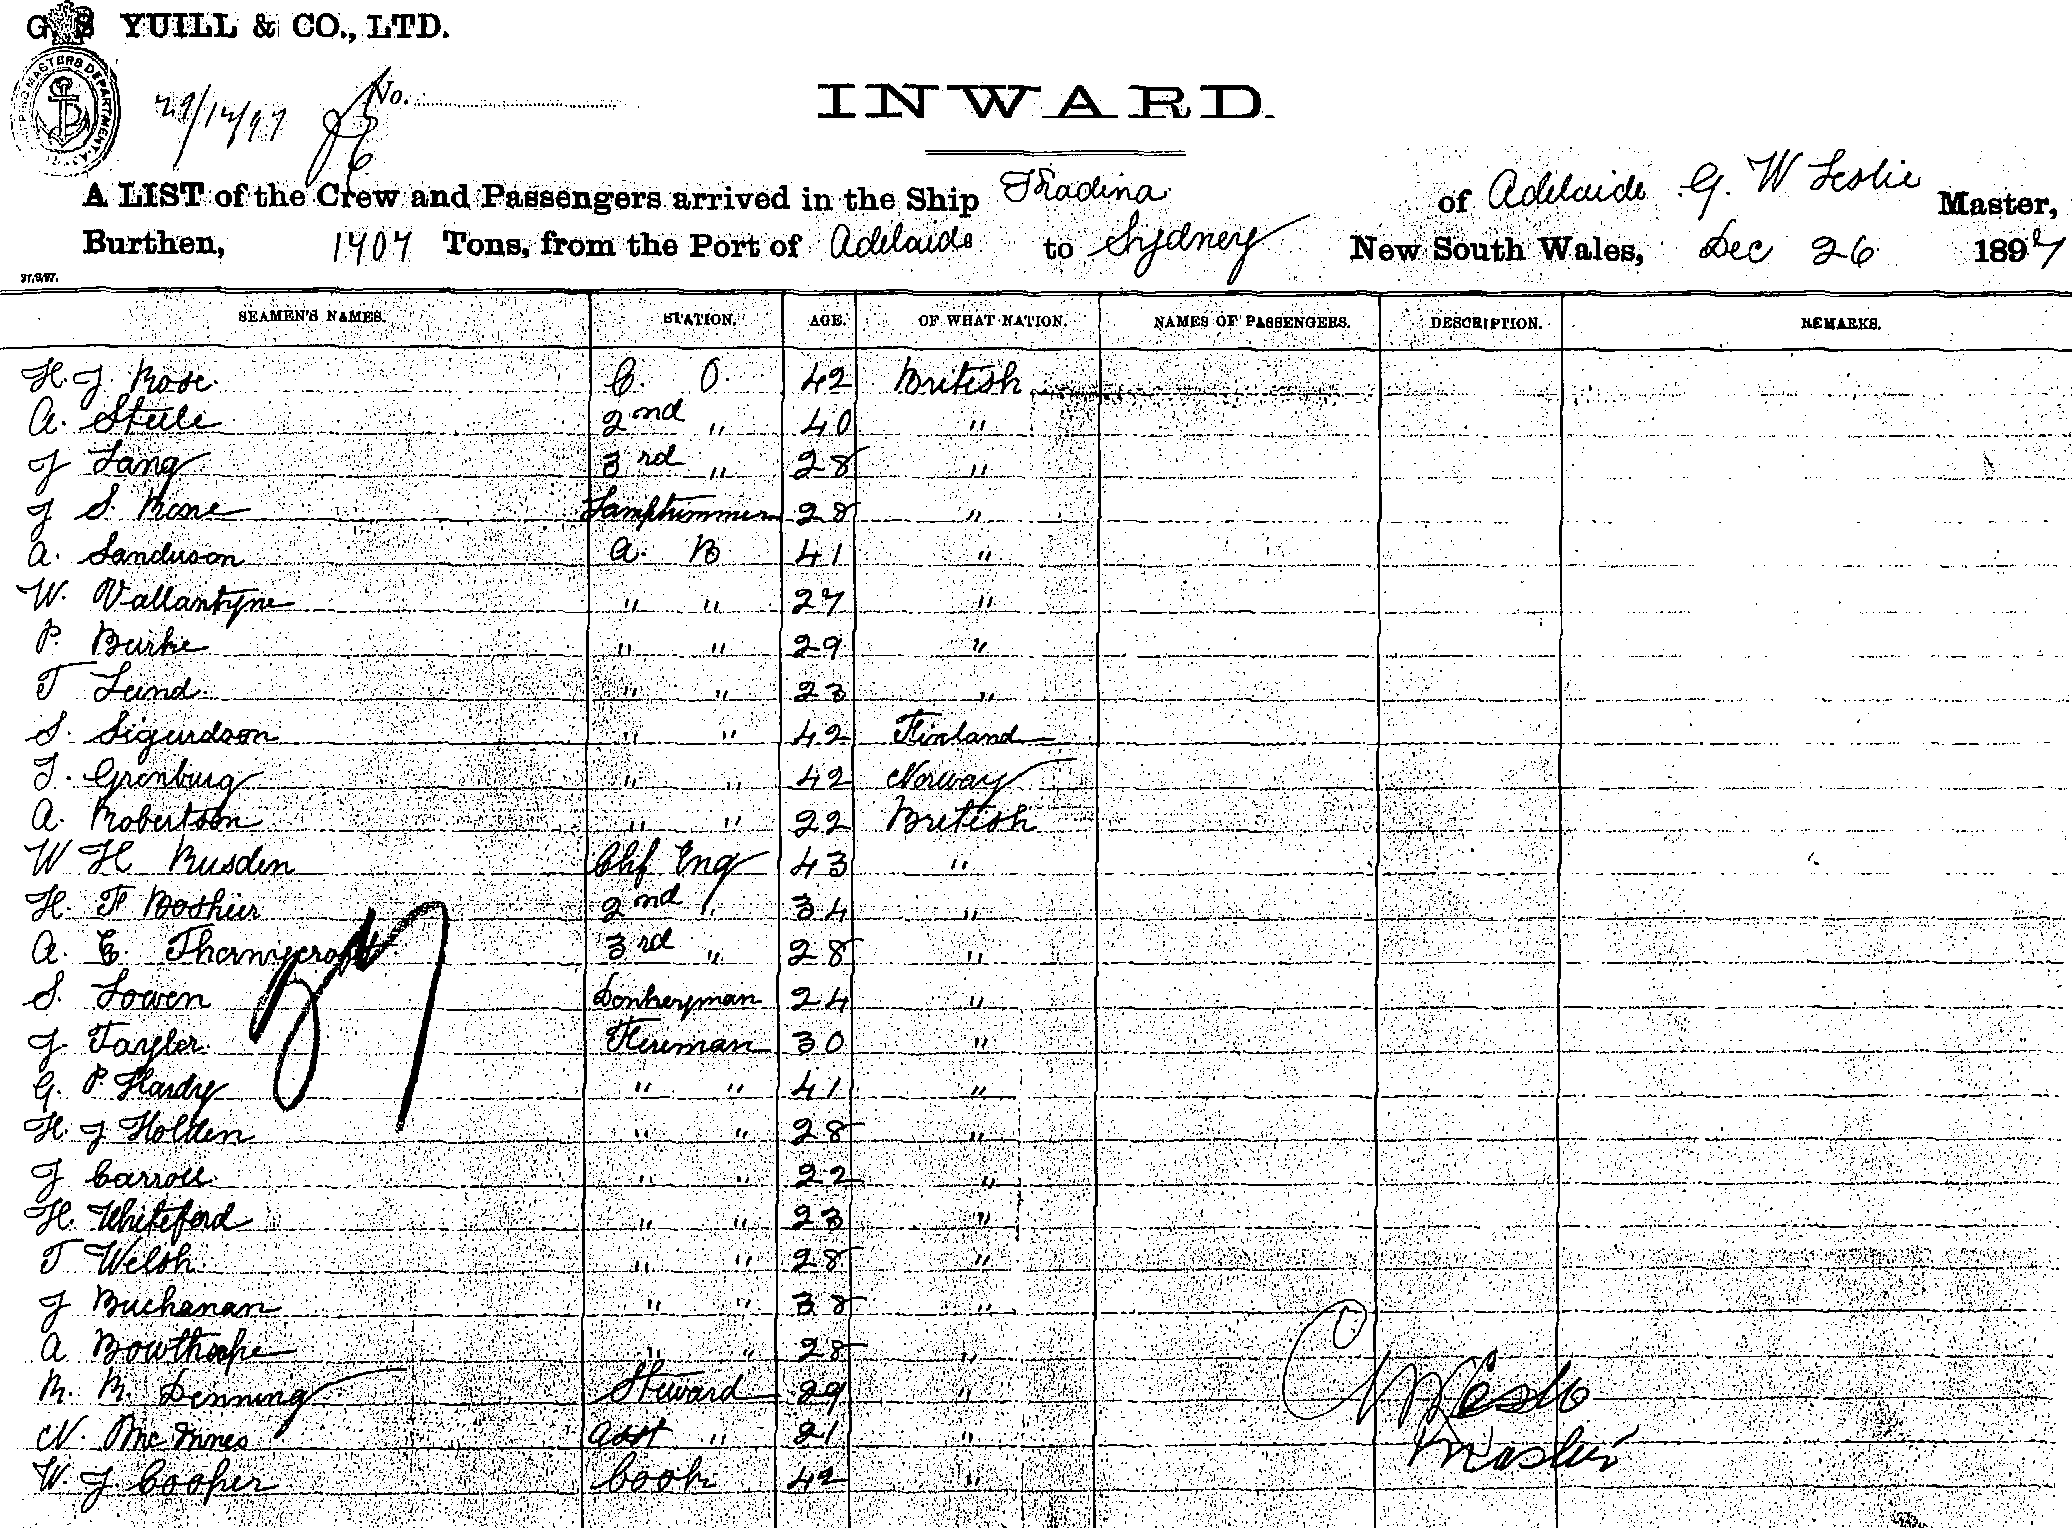 G. S. YUILL & CO., LTD.
29/12/97 No.
INWARD.
A LIST of the Crew and Passengers arrived in the Ship Tkadina of Adelaide G. W Leslie Master,
Burthen, 1907 Tons, from the Port of Adelaide to Sydney New South Wales, Dec 26 1897
SEAMEN'S NAMES. STATION. AGE. OF WHAT NATION. NAMES OF PASSENGERS. DESCRIPTION. REMARKS.
H. J. Rose C. O. 42 British
A. Steele 2nd " 40 "
J Lang 3rd " 28 "
J S. Rose Lamptrimmer 28 "
A. Sanderson A. B 41 "
W. Vallantyne " " 27 "
P. Burke " " 29 "
T Lund " " 23 "
S. Sigurdson " " 42 Finland
T. Grenburg " " 42 Norway
A. Robertson " " 22 British
W H Rusden Chf Eng 43 "
H. F Boshier 2nd " 34 "
A. E. Thornycroft 3rd " 28 "
S. Lowen Donkeyman 24 "
J. Tayler Fireman 30 "
G. P. Hardy " " 41 "
H. J Holden " " 28 "
J Carroll " " 22 "
H. Whiteford " " 23 "
T Welsh " " 28 "
J Buchanan " " 38 "
A Bowthorpe " " 28 "
R. R. Denning Steward 29 "
N. McInnes Asst " 21 "
W J Cooper Cook 42 "
Master